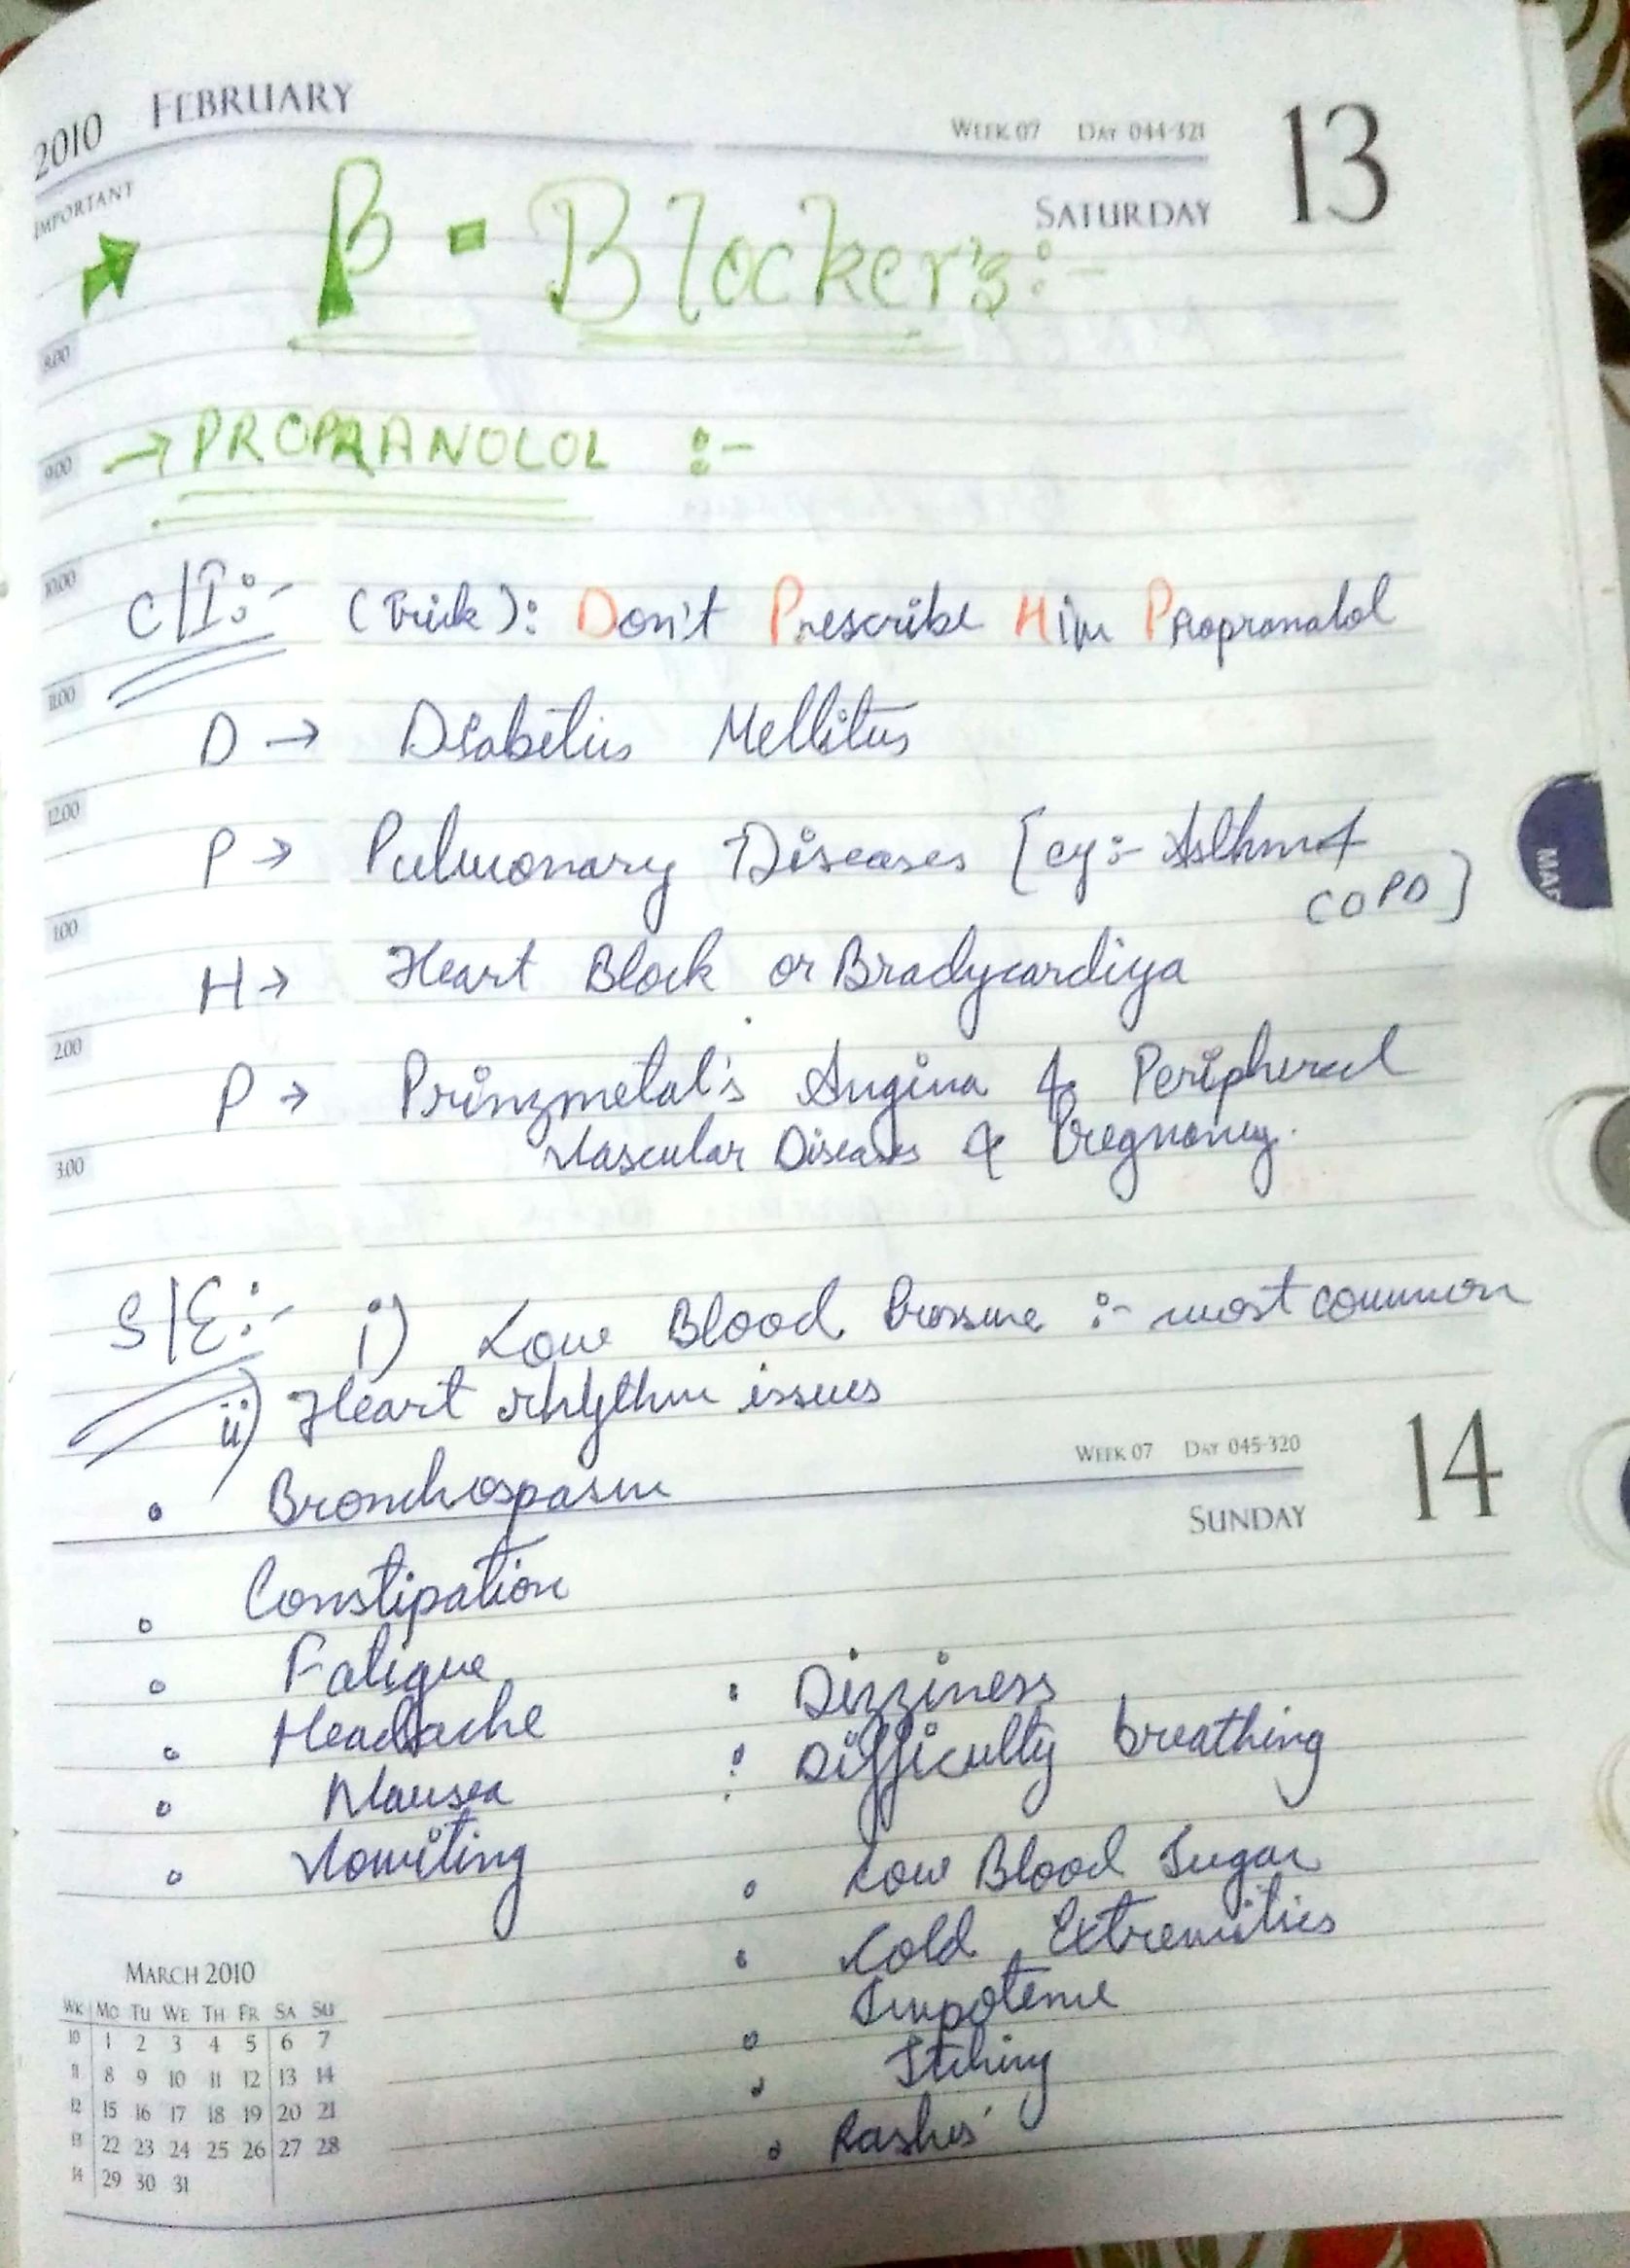 2010 FEBRUARY
WEEK 07 DAY 044-321
13
SATURDAY
IMPORTANT
β - Blocker's :-
8.00
9.00
→ PROPRANOLOL :-
10.00
C/I :- (Trick): Don't Prescribe Him Propranolol
11.00
D → Diabetius Mellitus
12.00
P → Pulmonary Diseases [eg:- Asthma &
COPD]
1.00
H → Heart Block or Bradycardiya
2.00
P → Prinzmetal's Angina & Peripheral
Vascular Diseases & Pregnancy.
3.00
S/E :- i) Low Blood Pressure :- most common
ii) Heart rhythm issues
WEEK 07 DAY 045-320
14
SUNDAY
• Bronchospasm
• Constipation
• Fatigue
• Headache
• Nausea
• Vomiting
• Dizziness
• Difficulty breathing
• Low Blood Sugar
• Cold Extremities
• Impotence
• Itching
• Rashes
MARCH 2010
WK MO TU WE TH FR SA SU
10 1 2 3 4 5 6 7
11 8 9 10 11 12 13 14
12 15 16 17 18 19 20 21
13 22 23 24 25 26 27 28
14 29 30 31